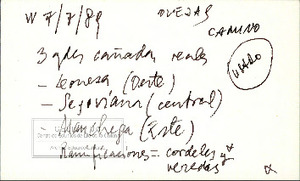 W 7/7/89 OVEJAS
CAMINO
3 gdes cañadas reales
USADO
- Leonesa (Oeste)
- Segoviana (central)
- Manchega (Este)
Ramificaciones = cordeles y
veredas